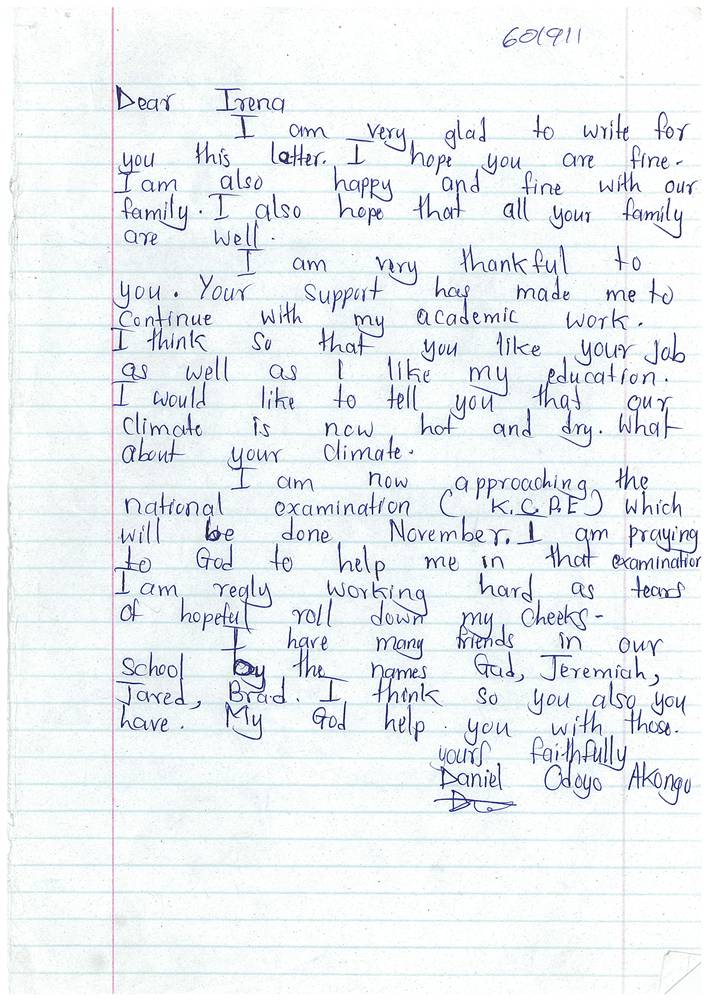 601911
Dear Irena
I am very glad to write for
you this letter. I hope you are fine.
I am also happy and fine with our
family. I also hope that all your family
are well.
I am very thankful to
you. Your support has made me to
continue with my academic work.
I think so that you like your job
as well as I like my education.
I would like to tell you that our
climate is now hot and dry. What
about your climate.
I am now approaching the
national examination (K.C.P.E) which
will be done November. I am praying
to God to help me in that examination
I am realy working hard as tears
of hopeful roll down my cheeks-
I have many friends in our
school by the names Gad, Jeremiah,
Jared, Brad. I think so you also you
have. My God help you with those.
yours faithfully
Daniel Odoyo Akongo